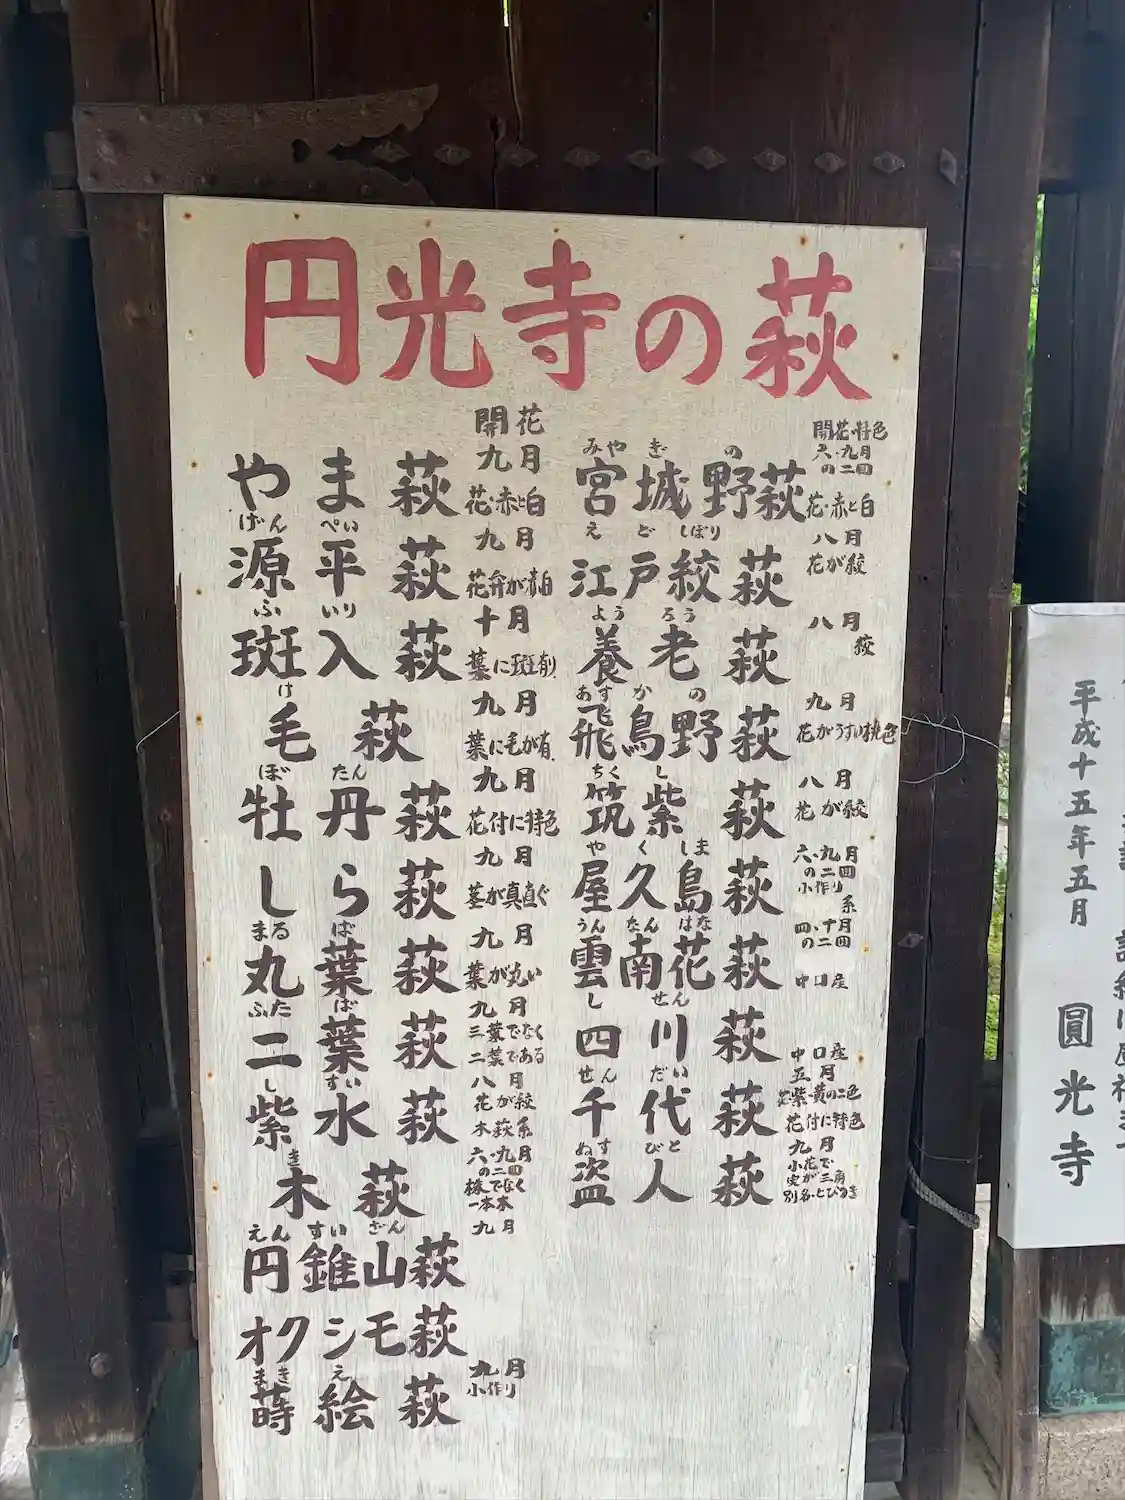 円光寺の萩
開花
九月
やま萩
花・赤と白
げんぺい
九月
源平萩
花弁が青白
ふいり
十月
斑入萩
葉に斑削
け
九月
毛萩
葉に毛が有
ぼたん
九月
牡丹萩
花付に特色
九月
しら萩
茎が真直ぐ
まるば
九月
丸葉萩
葉が丸い
ふたば
九月
二葉萩
三葉でなく
二葉である
しすい
八月
紫水萩
花が絞
木萩系
き
六・九月
の二回
木萩
株でなく
一本木
えんすいざん
九月
円錐山萩
オクシモ萩
まきえ
九月
蒔絵萩
小作り
開花・特色
みやぎの
六・九月
の二回
宮城野萩
花・赤と白
えどしぼり
八月
江戸絞萩
花が絞
ようろう
八月
養老萩
絞
あすかの
九月
飛鳥野萩
花がうすい桃色
ちくし
八月
筑紫萩
花が絞
やくしま
六・九月
の二回
屋久島萩
小作り
系
うんなんはな
四・十月
の二回
雲南花萩
中口産
しせん
四川萩
中口産
せんだい
五月
千代萩
花紫・黄の二色
花付に特色
ぬすびと
九月
盗人萩
小花で
実が三角
別名・とびつき
平成十五年五月
圓光寺